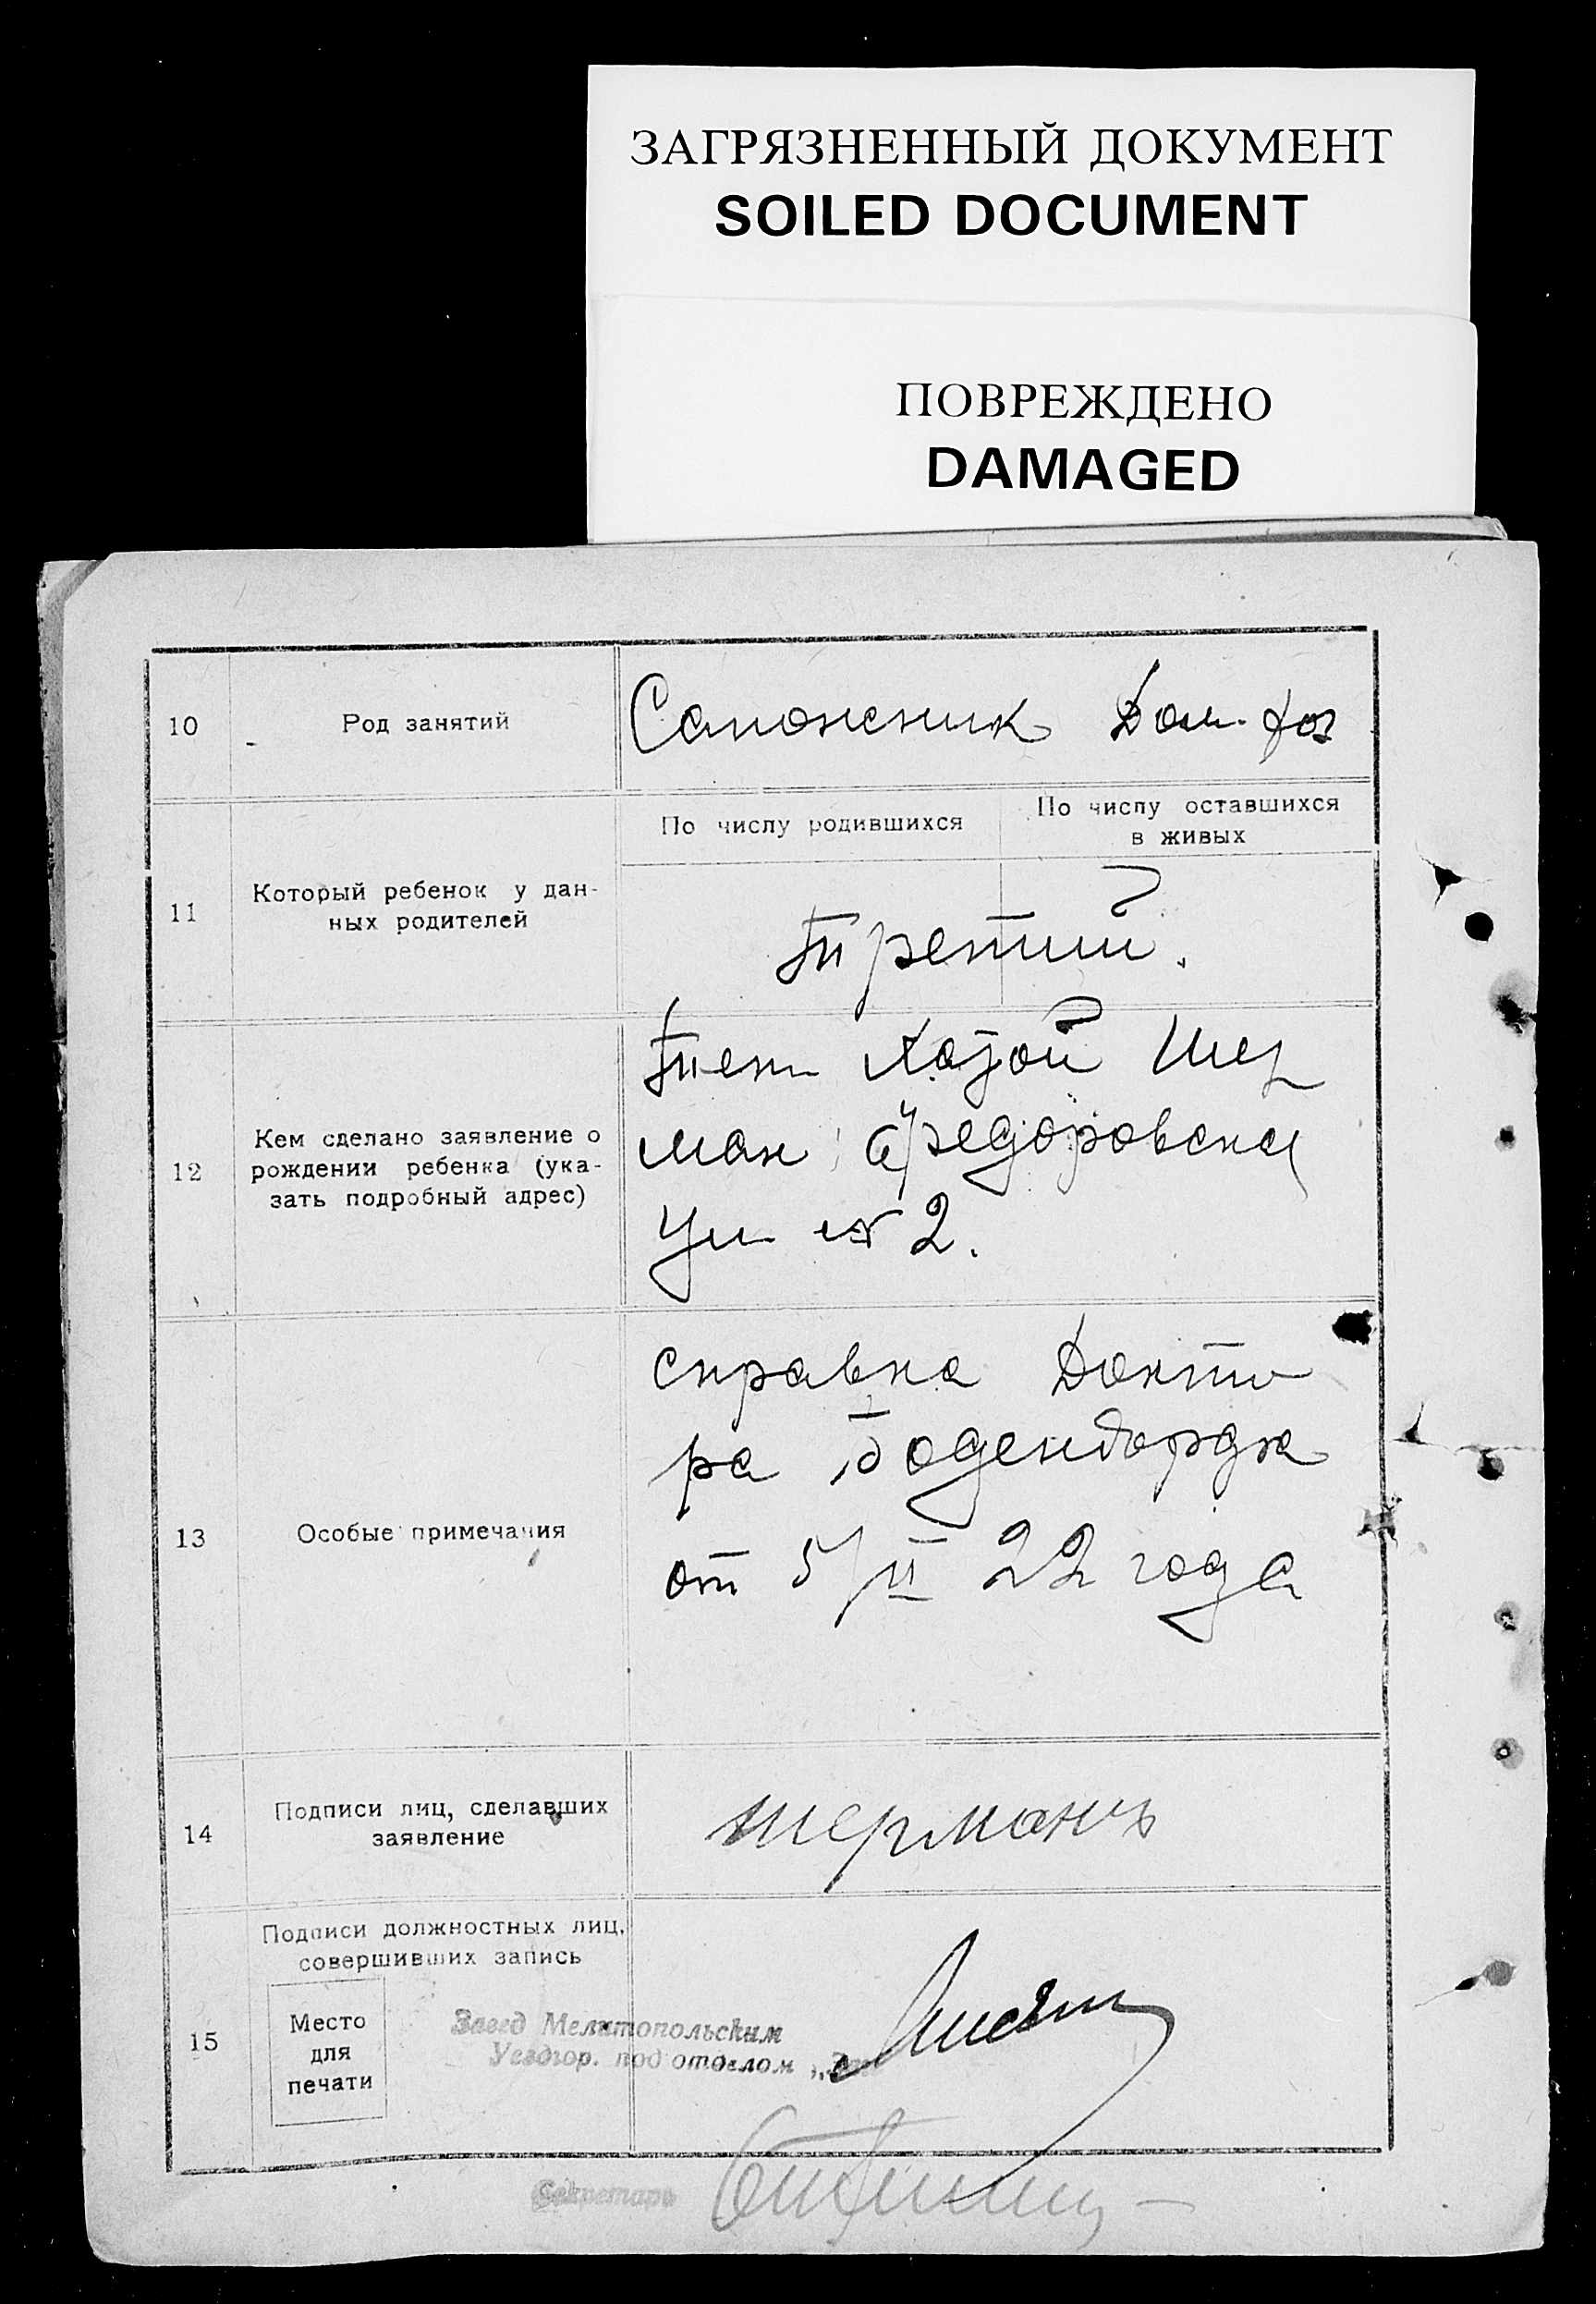 ЗАГРЯЗНЕННЫЙ ДОКУМЕНТ
SOILED DOCUMENT
ПОВРЕЖДЕНО
DAMAGED
10
Род занятий
Сапожник Дом. хоз
11
Который ребенок у дан-
ных родителей
По числу родившихся
По числу оставшихся
в живых
Третий.
12
Кем сделано заявление о
рождении ребенка (ука-
зать подробный адрес)
Шер
ман Федоровская
Ул № 2.
13
Особые примечания
справка Докто
ра
от 5/II 22 года
14
Подписи лиц, сделавших
заявление
Шерманъ
15
Подписи должностных лиц,
совершивших запись
Место
для
печати
Завед Мелитопольским
Уездгор. под отделом
Секретарь